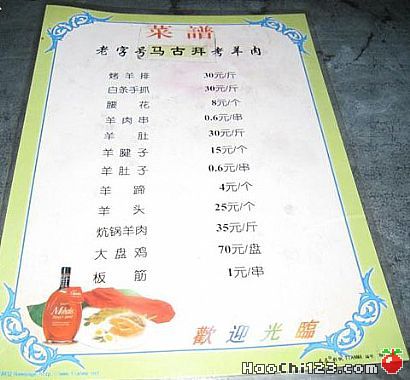 菜譜
老字号马古拜考羊肉
烤羊排 30元/斤
白条手抓 30元/斤
腰花 8元/个
羊肉串 0.6元/串
羊肚 30元/斤
羊腱子 15元/个
羊肚子 0.6元/串
羊蹄 4元/个
羊头 25元/个
炕锅羊肉 35元/斤
大盘鸡 70元/盘
板筋 1元/串
歡迎光臨
HaoChi123.com